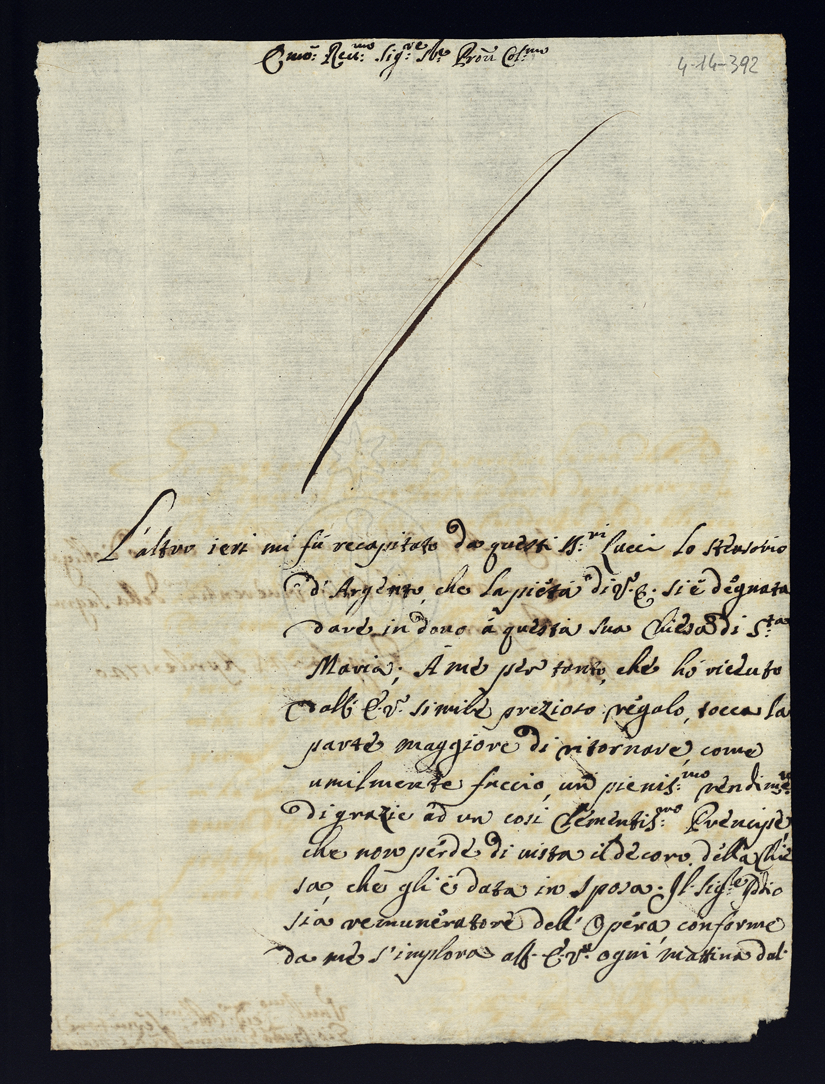 Emo: Reu:mo Sig:re Sre Prōn Col:mo
4-14-392
L'altro ieri mi fù recapitato da questi SS:ri Lucci lo stensorio
d'Argento, che la pietà di V.E. si è degnata
dare in dono à questa sua Chiesa di S:ta
Maria; À me per tanto, che hò riceuto
dall' E.V. simile prezioso regalo, tocca la
parte maggiore di ritornare, come
umilmente faccio, un pienis:mo rendim:to
di grazie ad un così Clementis:mo Prencipe
che non perde di uista il decoro della Chie
sa, che gli è data in sposa. Il Sig:re Idio
sia remuneratore dell' Opera conforme
da me s'implora all' E.V. ogni mattina dal